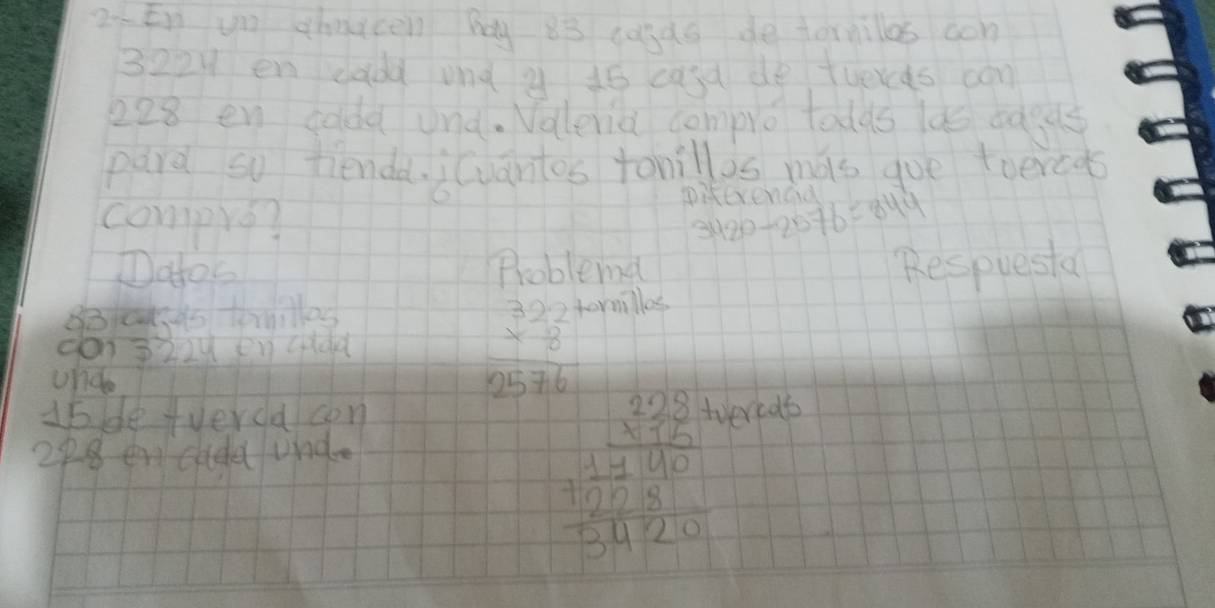 2- En un almacen hay 83 cajas de tornillos con
3224 en cada una y 15 caja de tuercas con
228 en cada una. Valeria compró todas las cajas
para su tienda. ¿Cuántos tonillos más que tuercas
compró?
Diferencia
3420-2576=844
Datos Problema Respuesta
83 cajas tornillos
con 3224 en cada
una
15 de tuerca con
228 en cada una
322 tornillos
× 8
2576
228 tuercas
×15
1140
+228
3420